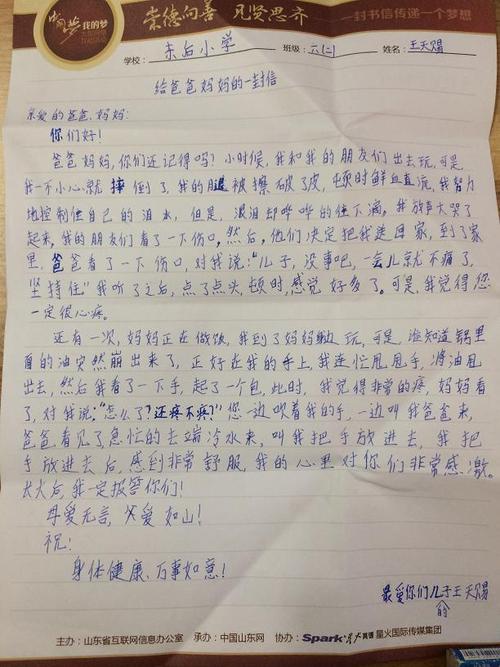 中国梦 我的梦
崇德向善 见贤思齐
一封书信传递一个梦想
学校: 东石小学 班级: 六(二) 姓名: 王天赐
给爸爸妈妈的一封信
亲爱的爸爸、妈妈:
你们好!
爸爸妈妈,你们还记得吗?小时候,我和我的朋友们出去玩,可是
我一不小心就摔倒了,我的腿被擦破了皮,顿时鲜血直流,我努力
地控制住自己的泪水,但是,眼泪却哗哗的往下滴。我放声大哭了
起来,我的朋友们看了一下伤口,然后,他们决定把我送回家,到了家
里,爸爸看了一下伤口,对我说:“儿子,没事吧,一会儿就不痛了,
坚持住”我听了之后,点了点头,顿时,感觉好多了。可是,我觉得您
一定很心疼。
还有一次,妈妈正在做饭,我到了妈妈那边玩,可是,谁知道锅里
面的油突然崩出来了,正好在我的手上,我连忙甩甩手,将油甩
出去,然后我看了一下手,起了一个包,此时,我觉得非常的疼,妈妈看
了,对我说:“怎么了?还疼不疼?”您一边吹着我的手,一边叫我爸爸来,
爸爸看见了急忙的去端冷水来,叫我把手放进去,我把
手放进去后,感到非常舒服,我的心里对你们非常感激。
长大后,我一定报答你们!
母爱无言,父爱如山!
祝:
身体健康、万事如意!
最爱你们的儿子王天赐
主办:山东省互联网信息办公室 承办:中国山东网 协办:Spark 星火英语 星火国际传媒集团